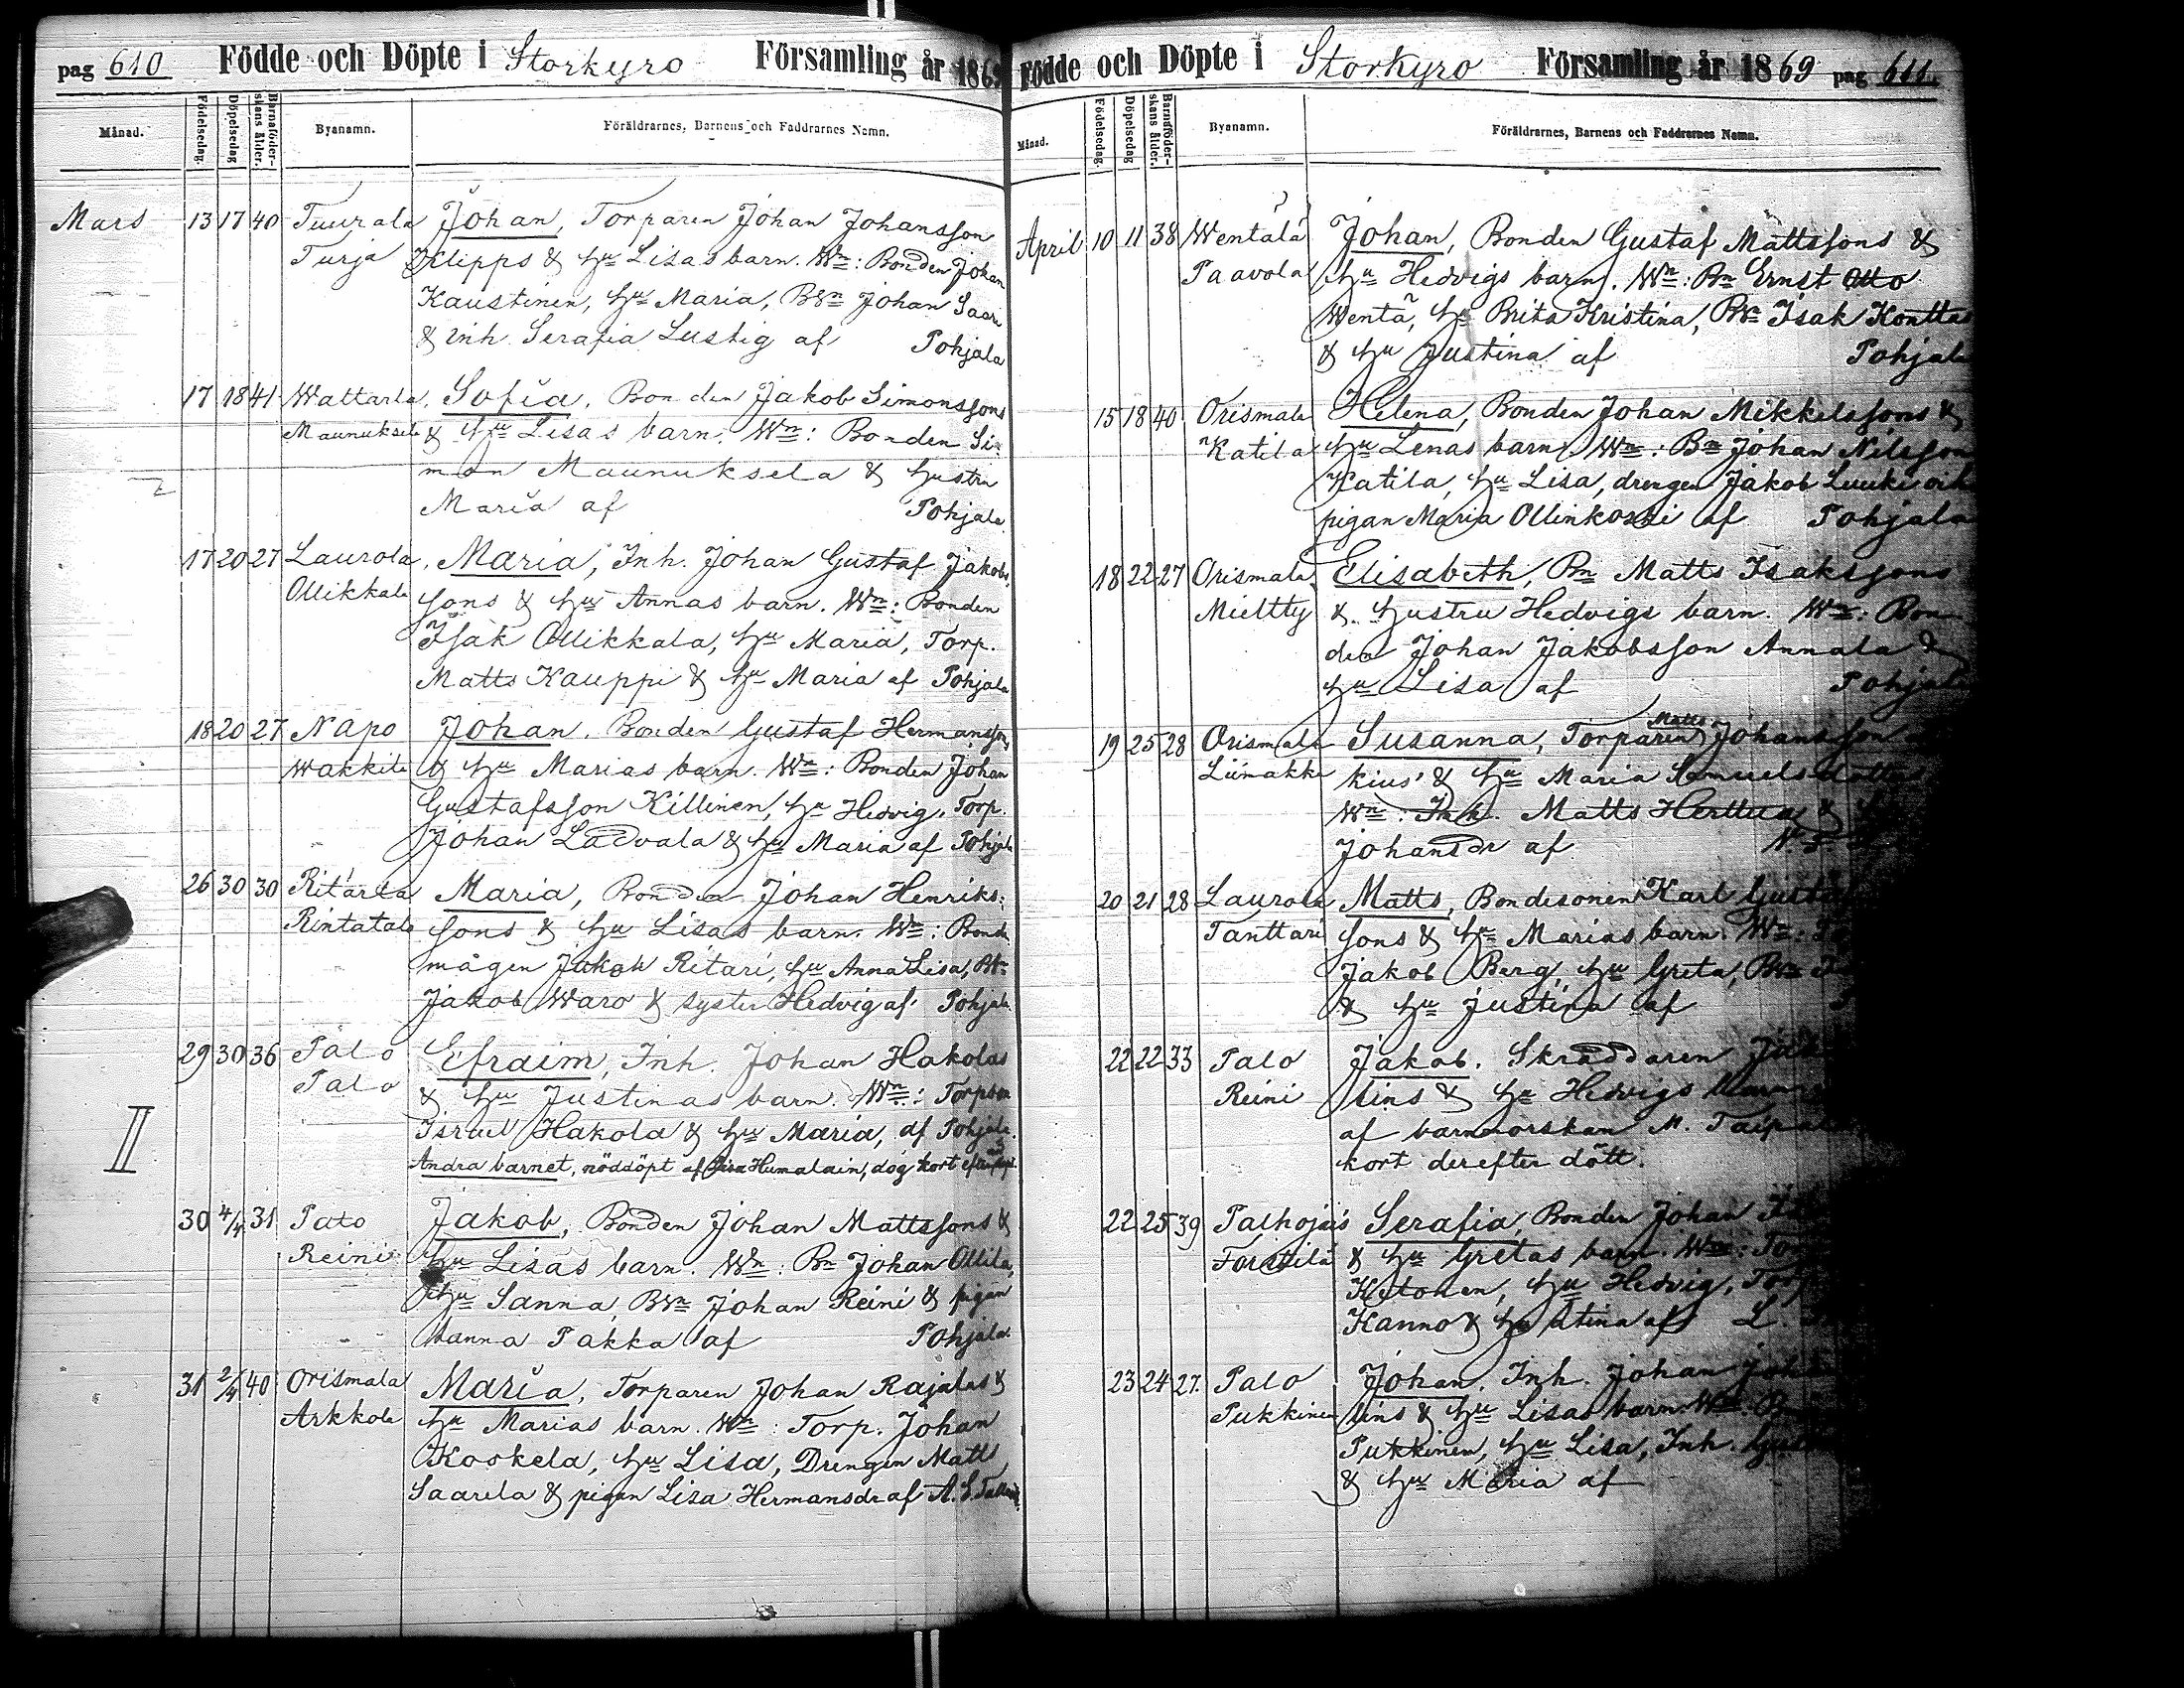 pag 610 Födde och Döpte i Storkyro Församling år 1869
Månad. Födelsedag. Döpelsedag Barnaföder-skans ålder. Byanamn. Föräldrarnes, Barnens och Faddrarnes Namn.
Mars 13 17 40 Tuurala Johan, Torparen Johan Johansson
Turja Klipps & hu Lisas barn. Wn: Bonden Johan
Kaustinen, hu Maria, Bsn Johan Saari
& inh. Serafia Lustig af Pohjala
17 18 41 Wattarla, Sofia, Bonden Jakob Simonssons
Maunuksela & hu Lisas barn. Wn: Bonden Si-
mon Maunuksela & hustru
Maria af Pohjala
17 20 27 Laurola, Maria, Inh. Johan Gustaf Jakobs-
Ollikkala sons & hu Annas barn. Wn: Bonden
Isak Ollikkala, hu Maria, Torp.
Matts Kauppi & hu Maria af Pohjala
18 20 27 Napo Johan, Bonden Gustaf Hermanssons
Wakkila & hu Marias barn. Wn: Bonden Johan
Gustafsson Killinen, hu Hedvig, Torp.
Johan Ladvala & hu Maria af Pohjala
26 30 30 Ritarla Maria, Bonden Johan Henriks-
Rintatalo sons & hu Lisas barn. Wn: Bonde-
mågen Jakob Ritari, hu Anna Lisa, Bsn
Jakob Waro & syster Hedvig af Pohjala
29 30 36 Palo Efraim, Inh. Johan Hakolas
Palo & hu Justinas barn. Wn: Torpson
Israel Hakola & hu Maria, af Pohjala.
II Andra barnet, nöddöpt af Lisa Humalain, dog kort efter
30 4/4 31 Palo Jakob, Bonden Johan Mattssons &
Reini hu Lisas barn. Wn: Bn Johan Ollila,
hu Sanna, Bsn Johan Reini & pigan
Sanna Pakka af Pohjala.
31 2/4 40 Orismala Maria, Torparen Johan Rajalas &
Arkkola hu Marias barn. Wn: Torp. Johan
Koskela, hu Lisa, Drengen Matts
Saarela & pigan Lisa Hermansdr af A. S.
Födde och Döpte i Storkyro Församling år 1869 pag 611.
Månad. Födelsedag. Döpelsedag Barnaföder-skans ålder. Byanamn. Föräldrarnes, Barnens och Faddrarnes Namn.
April 10 11 38 Wentälä Johan, Bonden Gustaf Mattssons &
Paavola hu Hedvigs barn. Wn: Bn Ernst Otto
Wentä, hu Brita Kristina, Bsn Isak Konttas
& hu Justina af Pohjala
15 18 40 Orismala Helena, Bonden Johan Mikkelssons &
Katila hu Lenas barn. Wn: Bn Johan Nilsson
Katila, hu Lisa, drengen Jakob Luuki och
pigan Maria Ollinkoski af Pohjala
18 22 27 Orismala Elisabeth, Bn Matts Isakssons
Mieltty & hustru Hedvigs barn. Wn: Bon-
den Johan Jakobsson Annala &
hu Lisa af Pohjala
19 25 28 Orismala Susanna, Torparen Matts Johansson
Liimakka kius' & hu Maria Samuelsdotters
Wn: Inh. Matts Herttua &
Johansdr af
20 21 28 Laurola Matts, Bondesonen Karl Gustaf
Tanttari sons & hu Marias barn. Wn:
Jakob Berg, hu Greta, Bsn
& hu Justina af
22 22 33 Palo Jakob, Skräddaren
Reini lins & hu Hedvigs
af barnmorskan M.
kort derefter dött.
22 25 39 Palhojais Serafia, Bonden Johan
Forsttila & hu Gretas barn. Wn:
Ketonen, hu Hedvig, Torp
Hanno & hu Stina af L.
23 24 27. Palo Johan, Inh. Johan
Pukkinen lins & hu Lisas barn. Wn:
Pukkinen, hu Lisa, Inh.
& hu Maria af